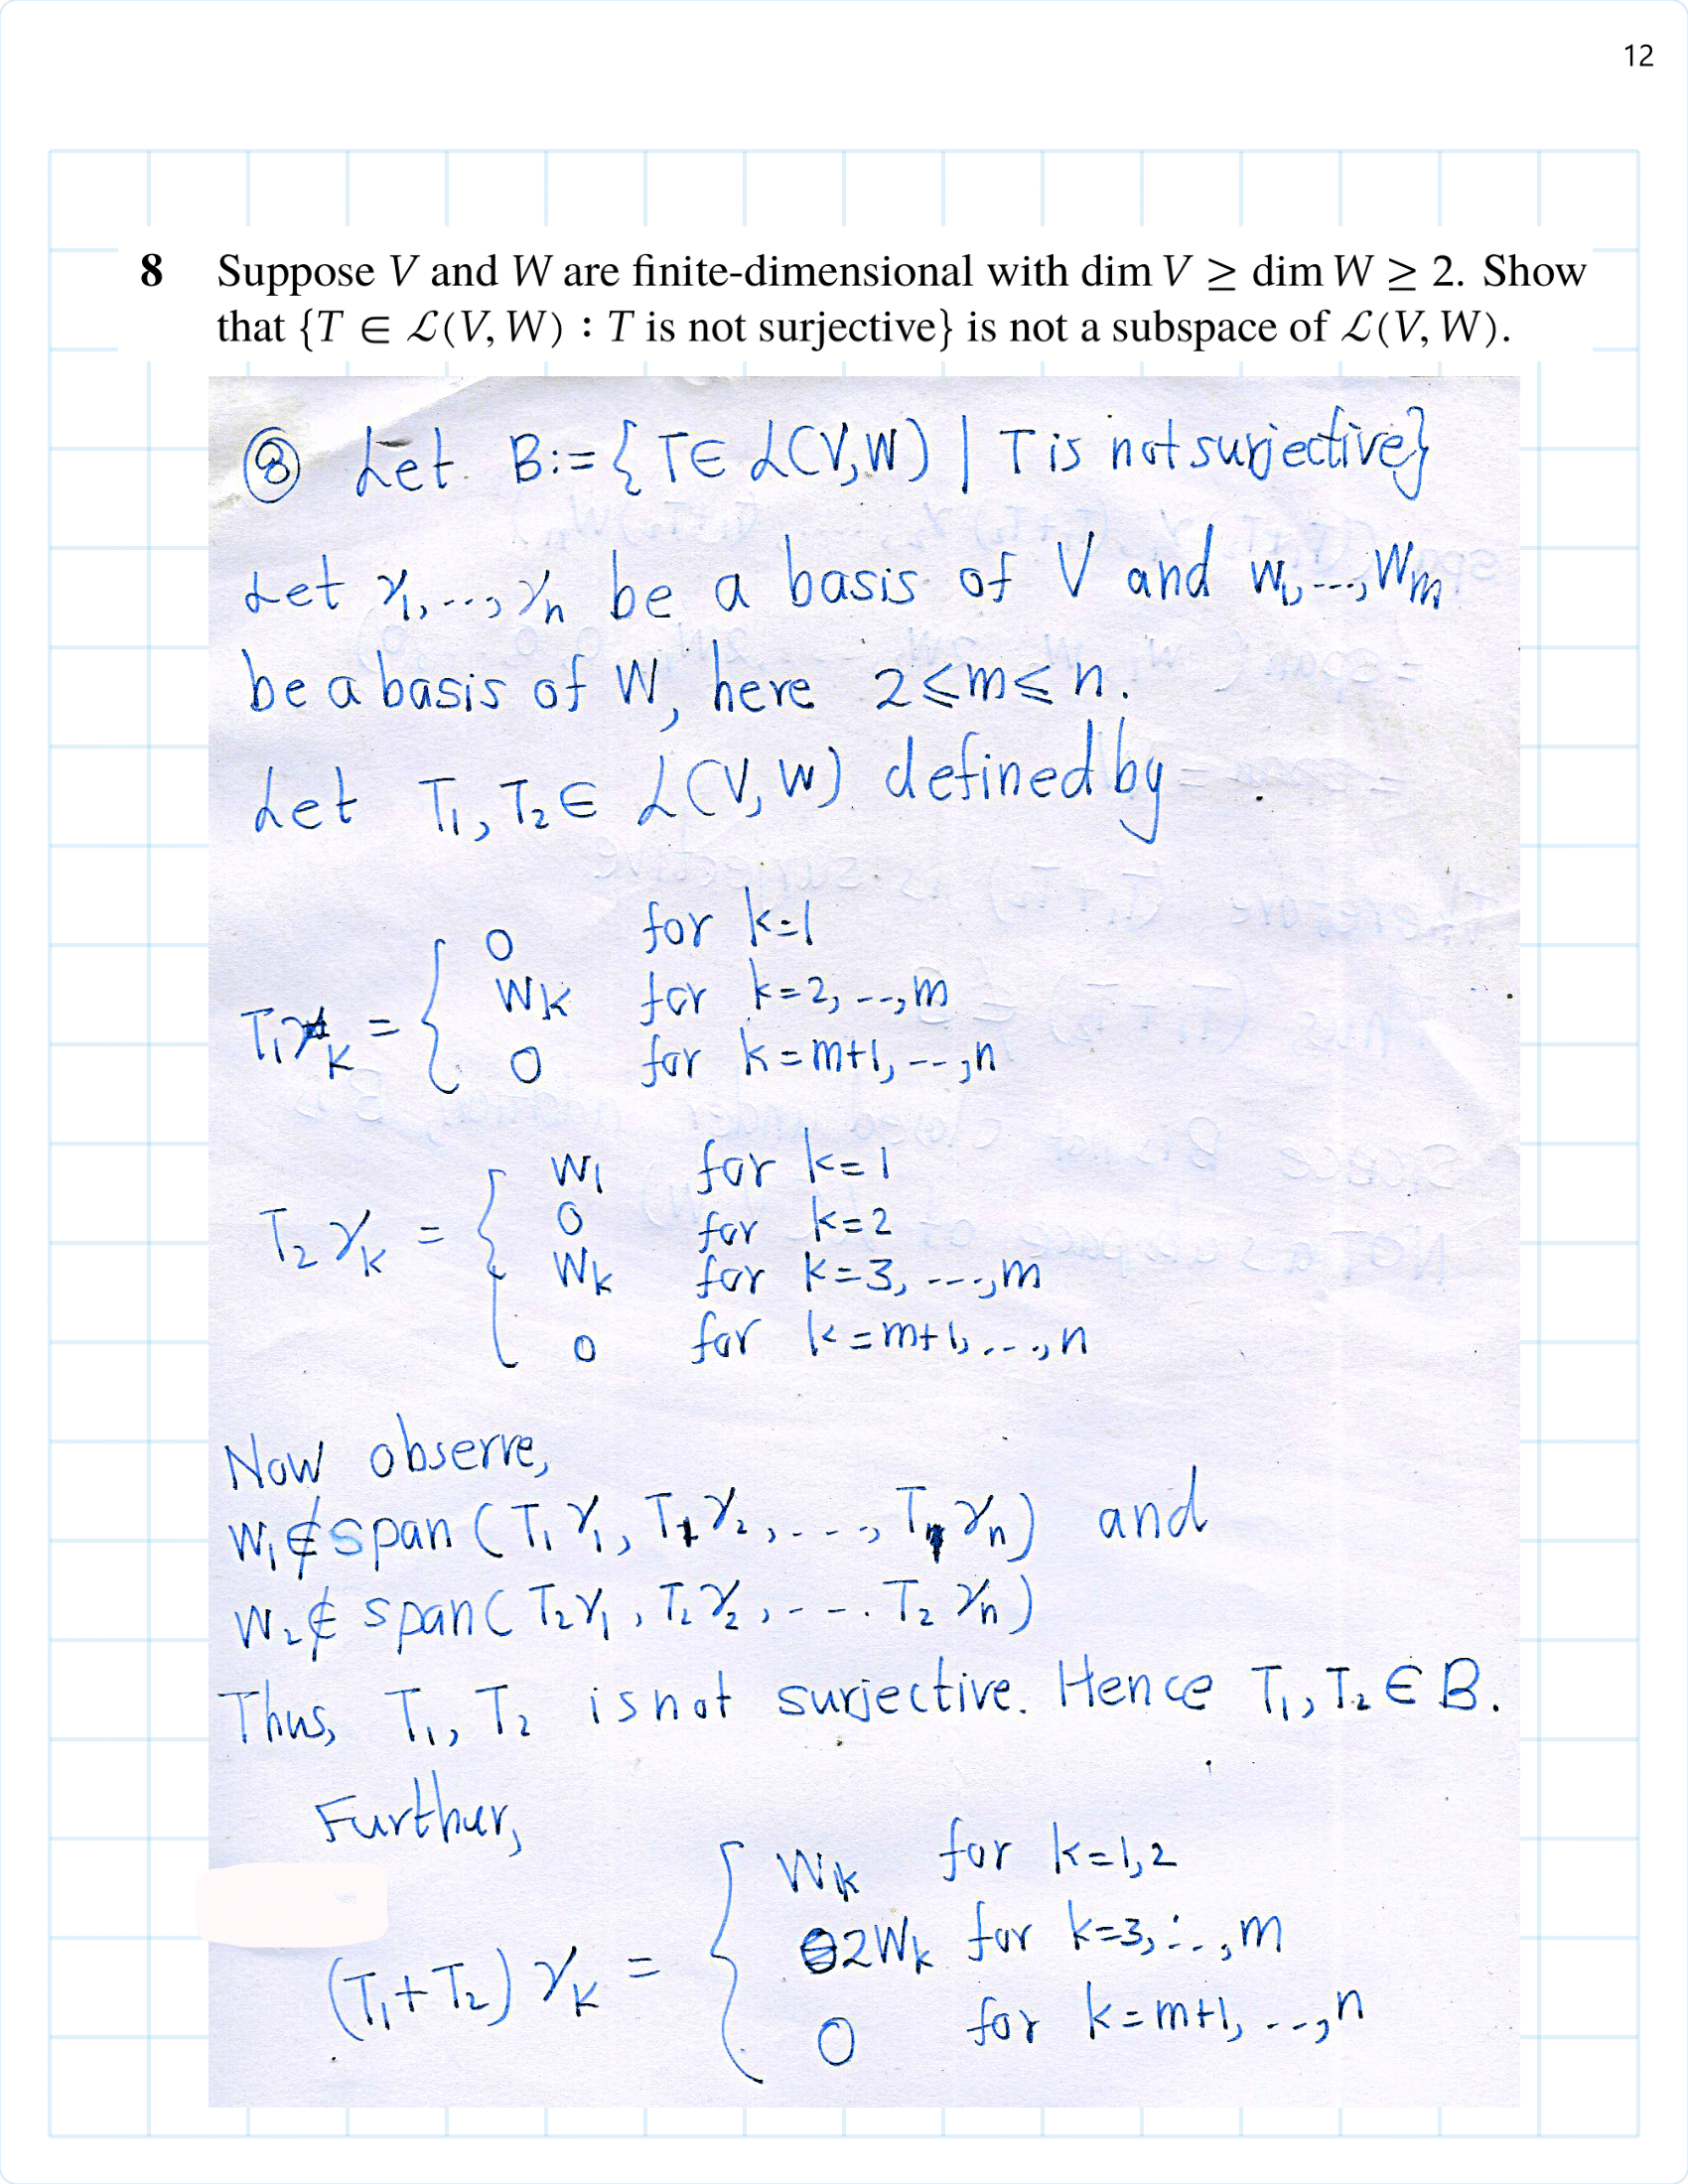 12
8 Suppose V and W are finite-dimensional with dim V ≥ dim W ≥ 2. Show
that {T ∈ ℒ(V, W) : T is not surjective} is not a subspace of ℒ(V, W).
⑧ Let B:= { T∈ ℒ(V,W) | T is not surjective}
Let v₁, ..., vₙ be a basis of V and w₁, ..., wₘ
be a basis of W, here 2 ≤ m ≤ n.
Let T₁, T₂ ∈ ℒ(V, W) defined by
T₁vₖ = { 0 for k=1
wₖ for k=2, ..., m
0 for k=m+1, ..., n
T₂vₖ = { w₁ for k=1
0 for k=2
wₖ for k=3, ..., m
0 for k=m+1, ..., n
Now observe,
w₁ ∉ span (T₁v₁, T₁v₂, ..., T₁vₙ) and
w₂ ∉ span (T₂v₁, T₂v₂, .... T₂vₙ)
Thus, T₁, T₂ is not surjective. Hence T₁, T₂ ∈ B.
Further,
(T₁+T₂)vₖ = { wₖ for k=1,2
2wₖ for k=3, ..., m
0 for k=m+1, ..., n